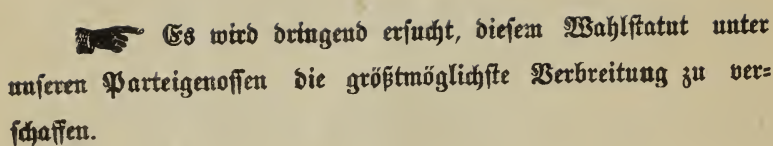 ☛ Es wird dringend ersucht, diesem Wahlstatut unter
unseren Parteigenossen die größtmöglichste Verbreitung zu ver=
schaffen.